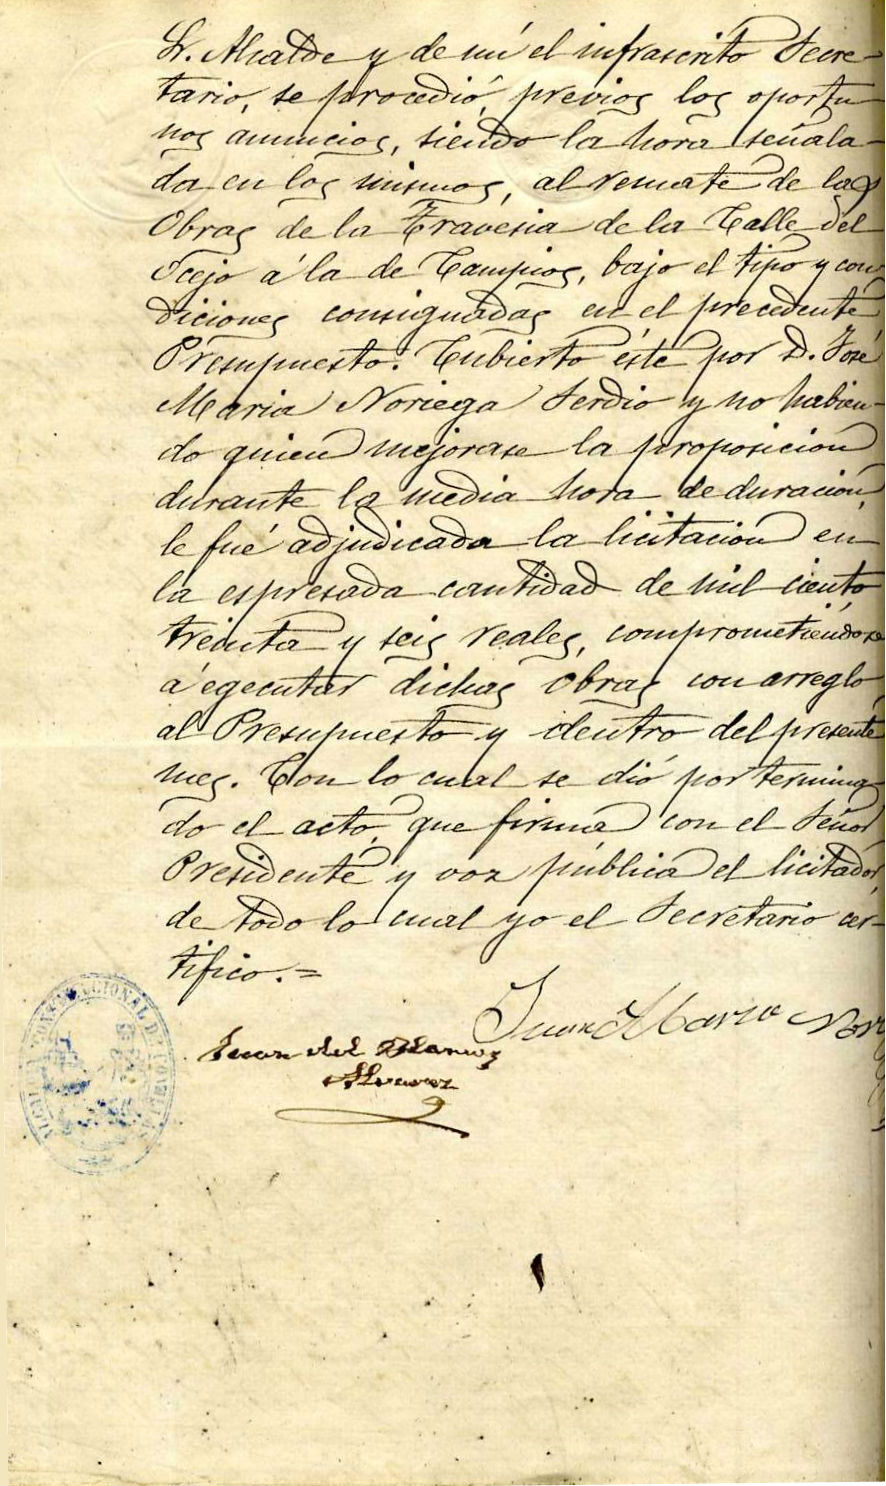 Sr. Alcalde y de mí el infrascrito Secre-
tario, se procedió, previos los oportu-
nos anuncios, siendo la hora señala-
da en los mismos, al remate de las
Obras de la Travesia de la Calle del
Ocejo á la de Campios, bajo el tipo y con-
diciones consignadas en el precedente
Presupuesto. Cubierto éste por D. José
Maria Noriega Serdio y no habien-
do quien mejorase la proposicion
durante la media hora de duracion,
le fué adjudicada la licitacion en
la espresada cantidad de mil ciento
treinta y seis reales, comprometiéndose
á egecutar dichas obras con arreglo
al Presupuesto y dentro del presente
mes. Con lo cual se dió por termina-
do el acto, que firma con el Señor
Presidente y voz pública el licitador,
de todo lo cual yo el Secretario cer-
tifico.=
Maria Nor
Juan del
Alvarez
CONSTITUCIONAL DE COMILLAS